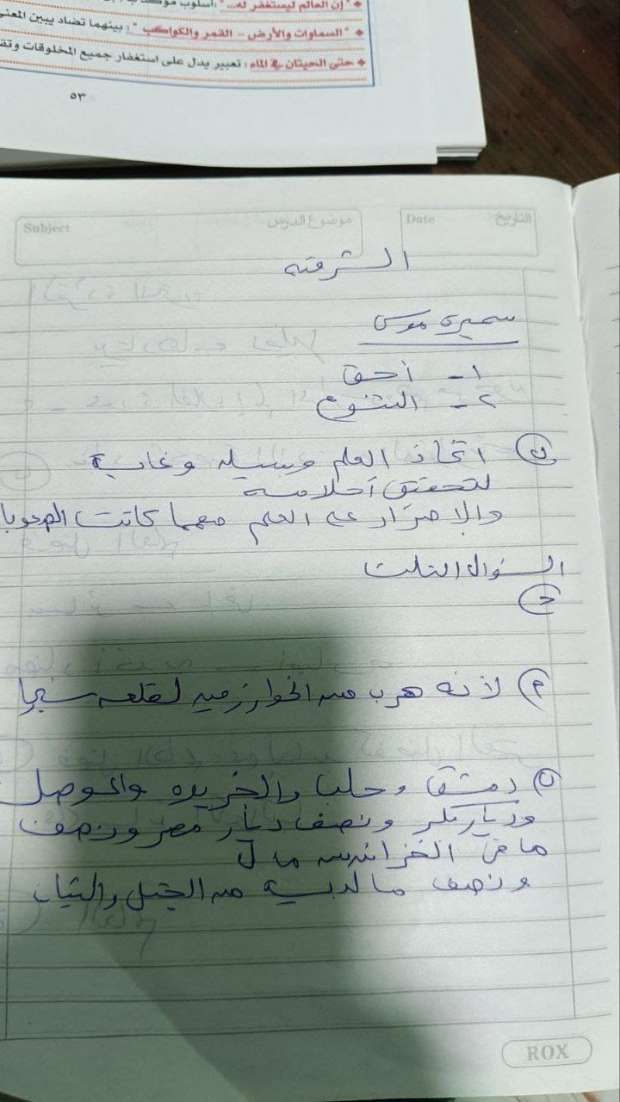 "إن العالم ليستغفر له..." : أسلوب
"السماوات والأرض - القمر والكواكب" : بينهما تضاد يبين المعنى
حتى الحيتان في الماء : تعبير يدل على استغفار جميع المخلوقات
٥٣
Subject موضوع الدرس Date التاريخ
الشرقيه
سميرة موسى
١- أحق
٢- التنوع
ن اتخاذ العلم وسيله وغايه
لتحقيق أحلامه
والاصرار على العلم مهما كانت الصعوبا
السؤال التلت
ح
م لأنه هرب من الخوارزميه لقلعه سنجار
ن دمشق وحلب والخزيره والموصل
وديار بكر ونصف ديار مصر ونصف
ما في الخزائن من مال
ونصف ما لديه من الخيل والثياب
ROX